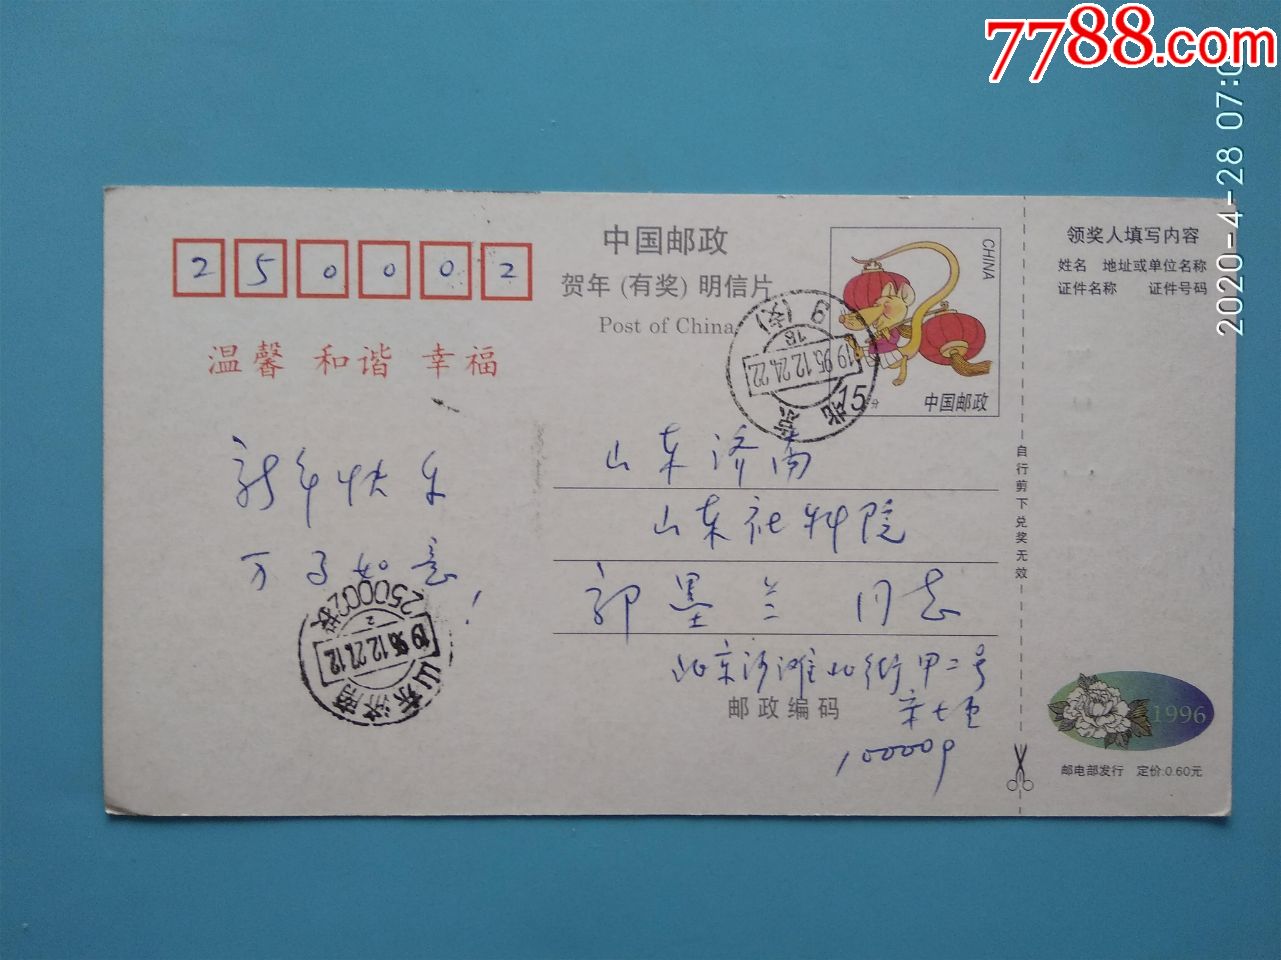 7788.com
2020-4-28 07:0
250002
中国邮政
贺年(有奖)明信片
Post of China
温馨 和谐 幸福
CHINA
15分
中国邮政
北京
19 95.12.24.22
18
(支) 9
新年快乐
万事如意!
250002投
2
19 95.12.27.12
山东济南
山东济南
山东社科院
郭墨兰 同志
北京沙滩北街甲二号
邮政编码
100009
自行剪下兑奖无效
领奖人填写内容
姓名 地址或单位名称
证件名称 证件号码
1996
邮电部发行 定价:0.60元